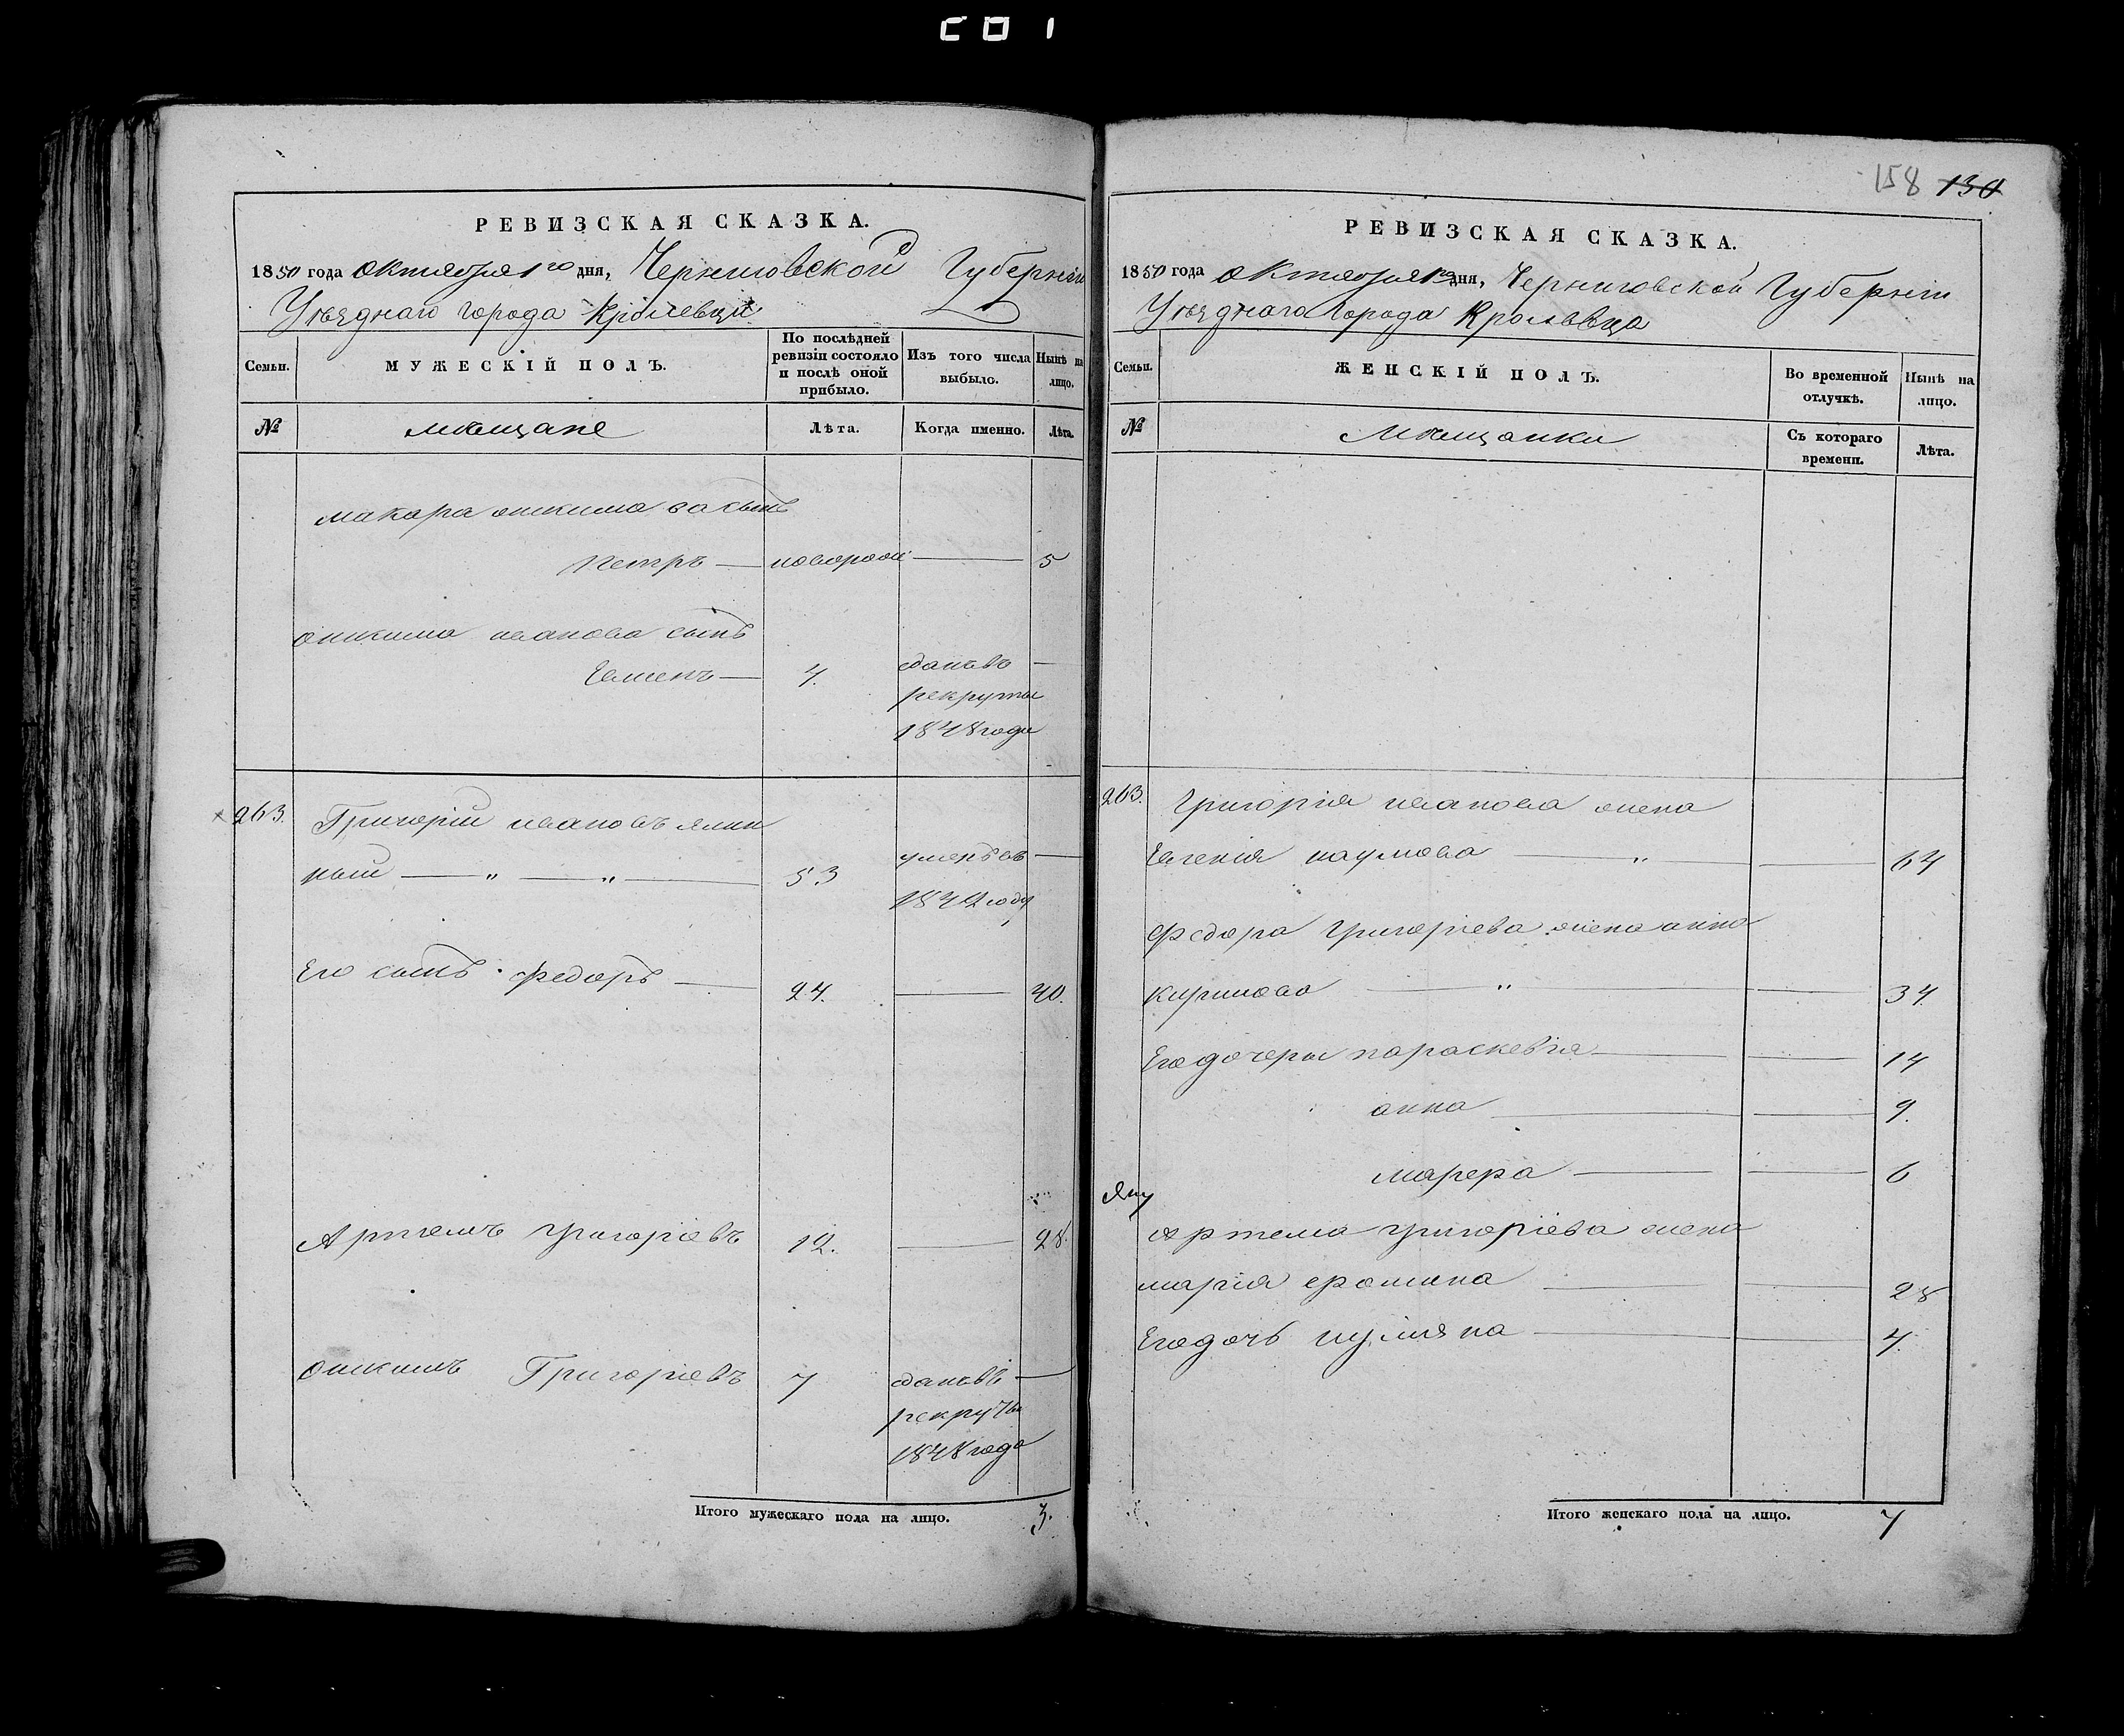 158 130
РЕВИЗСКАЯ СКАЗКА.
1850 года октября 1го дня, Черниговской Губерніи
Уѣзднаго города Кролевца
Семьи. МУЖЕСКІЙ ПОЛЪ. По послѣдней ревизіи состояло и послѣ оной прибыло. Изъ того числа выбыло. Нынѣ на лицо.
№ мѣщане Лѣта. Когда именно. Лѣта.
макара оникиева сынъ
Петръ — новорожд — 5
оникима иванова сынъ
Семенъ — 4. сданъ въ —
рекруты
1848 года
263. Григорій ивановъ
53 умеръ въ —
1842 году
Его сынъ Федоръ — 24. — 40.
Артемъ Григоріевъ 12. — 28.
оникимъ Григоріевъ 7 сданъ въ —
рекруты
1848 года
Итого мужескаго пола на лицо. 3.
РЕВИЗСКАЯ СКАЗКА.
1850 года октября 1го дня, Черниговской Губерніи
Уѣзднаго Города Кролевца
Семьи. ЖЕНСКІЙ ПОЛЪ. Во временной отлучкѣ. Нынѣ на лицо.
№ Мѣщанки Съ котораго времени. Лѣта.
263. Григорія иванова жена
Евгенія наумова — " — 64
Федора Григоріева жена анна
кирилова — " — 34
Его дочери параскевія — 14
анна — 9.
марфа — 6
Артема Григоріева жена
марія фомина — 28
Его дочь — 4.
Итого женскаго пола на лицо. 7